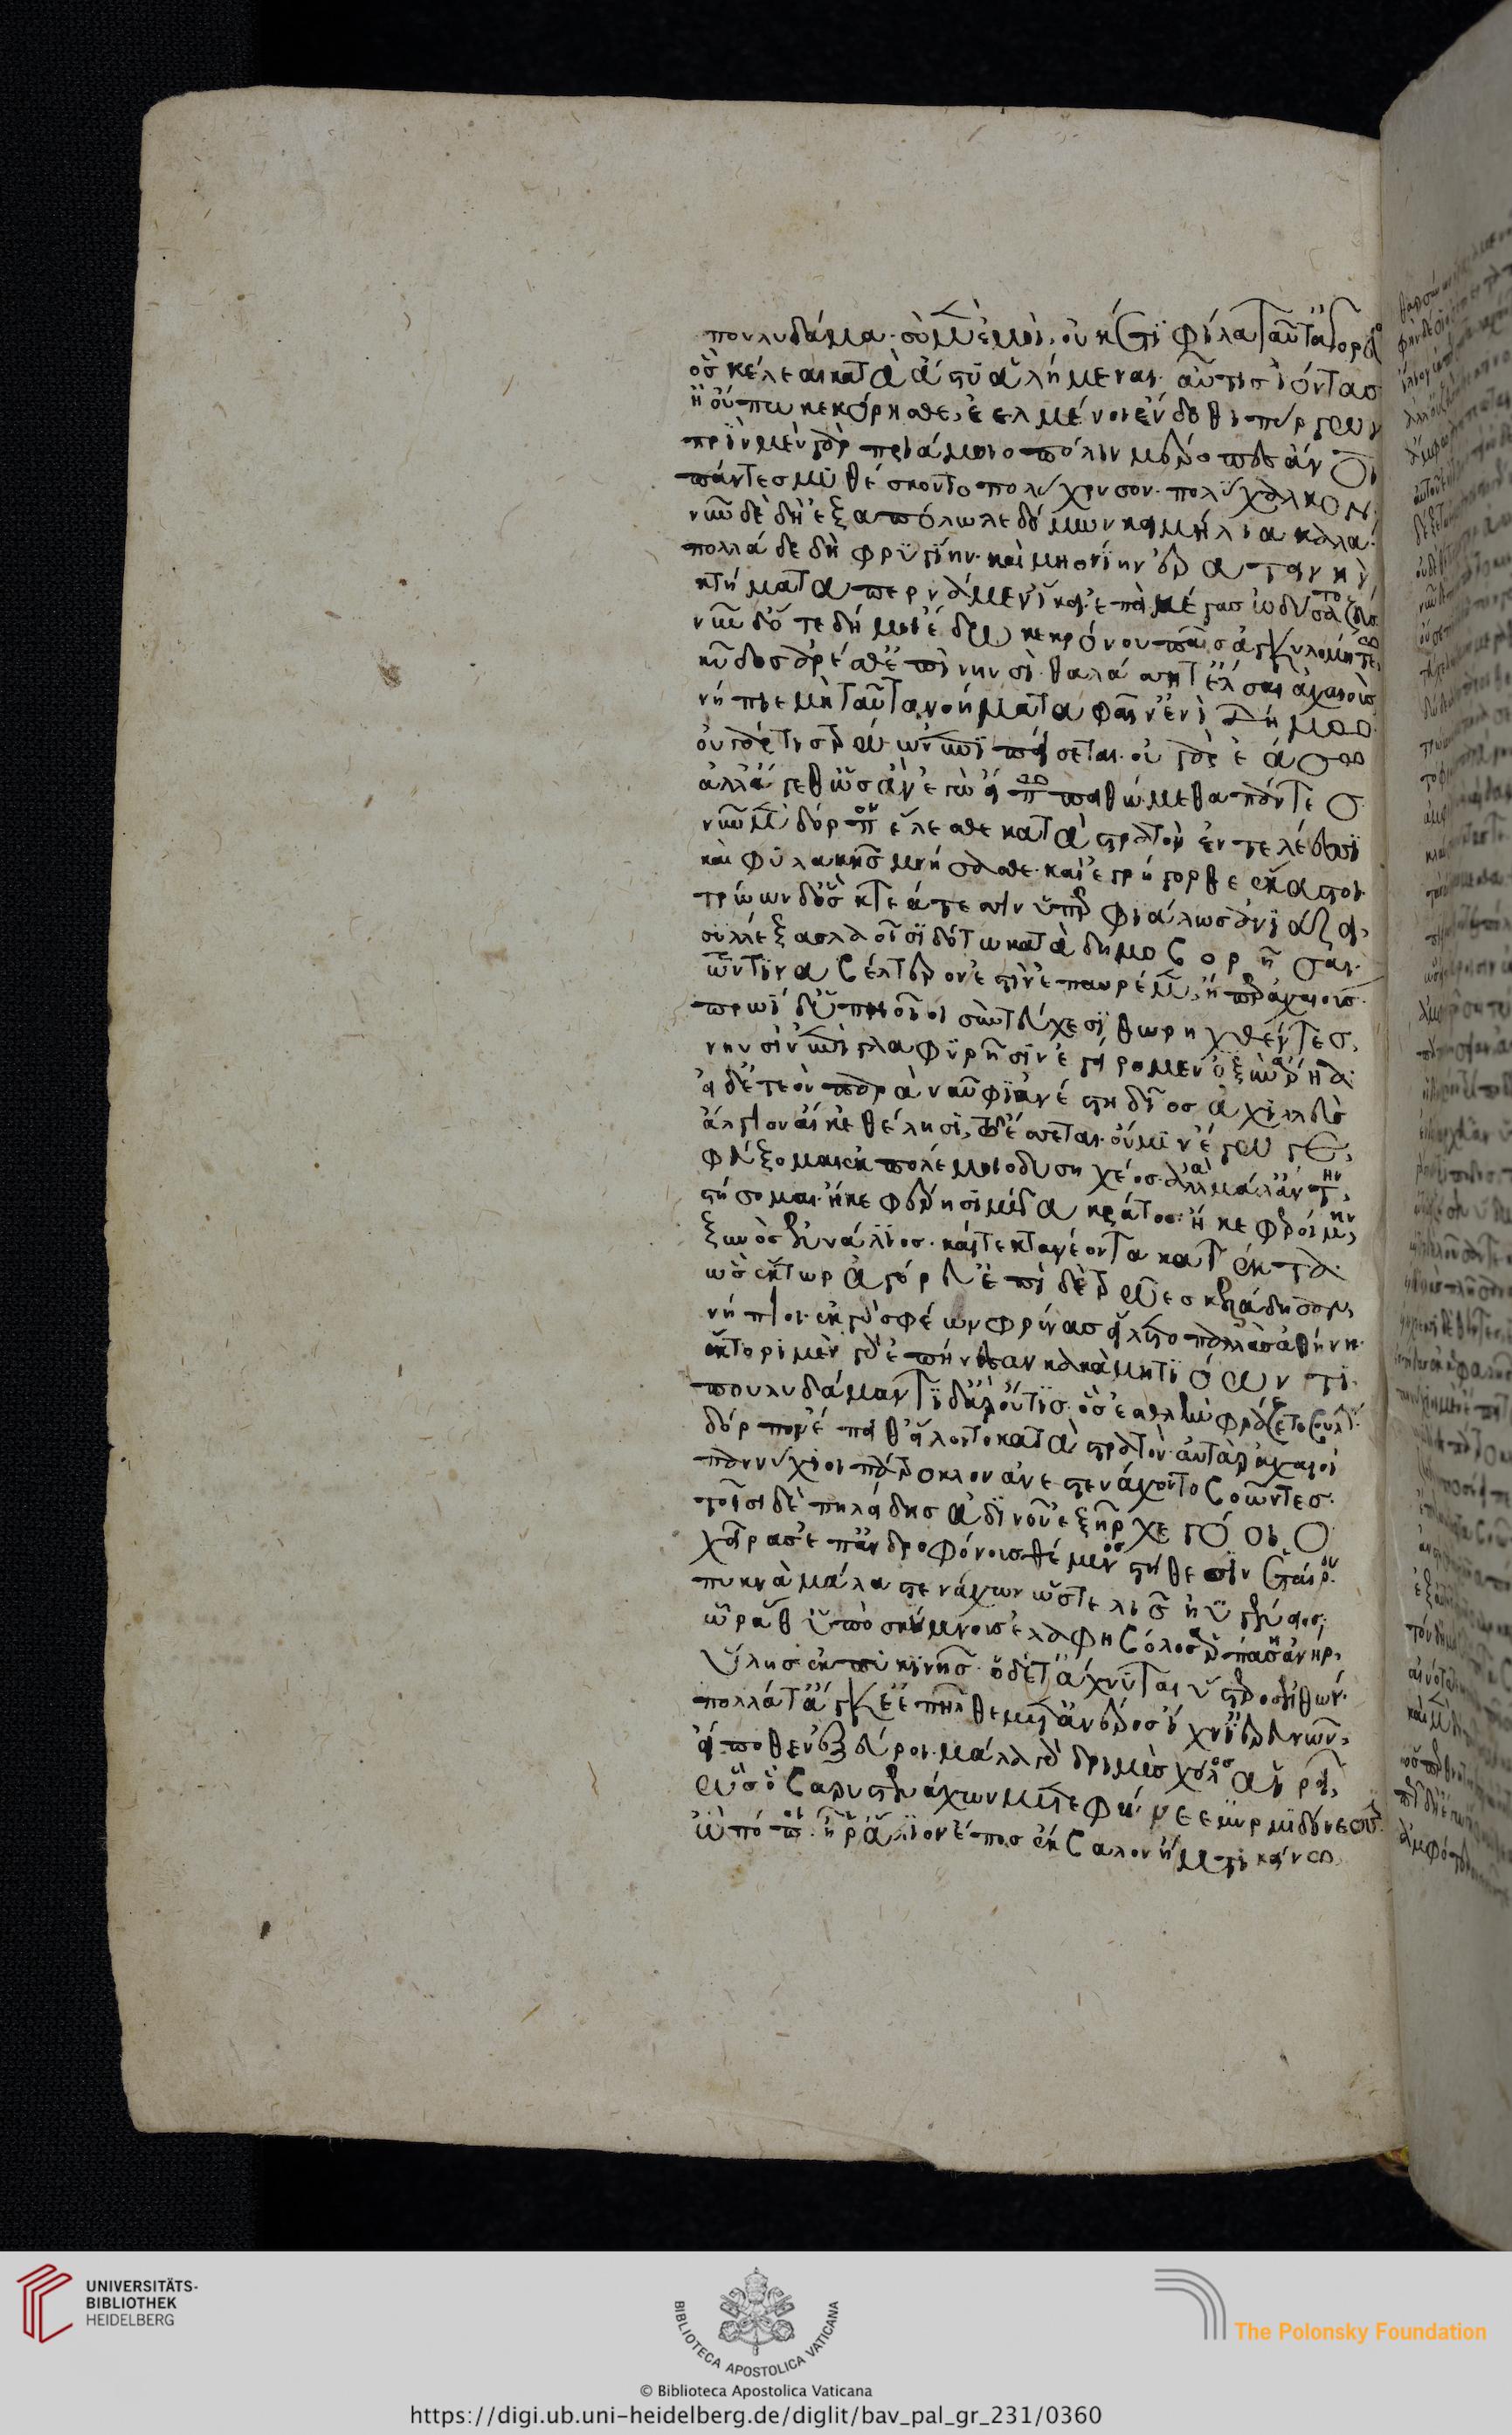 πουλυδάμα· σὺ μὲν ἐμοὶ, οὐκέτι φίλα ταῦτ' ἀγορεύ
ὃς κέλεαι κατὰ ἄστυ ἀλήμεναι αὖτις ἰόντας
ἢ οὔπω κεκόρησθε, ἐελμένοι ἔνδοθι πύργων,
πρὶν μὲν γὰρ πριάμοιο πόλιν μέροπες ἄνοι
πάντες μυθέσκοντο πολύχρυσον· πολύχαλκον·
νῦν δὲ δὴ ἐξαπόλωλε δόμων κειμήλια καλά·
πολλὰ δὲ δὴ φρυγίην· καὶ μηονίην ἐρατεινὴν,
κτήματα περνάμεν' ἵκει· ἐπεὶ μέγας ὠδύσατο ζεύς
νῦν δ' ὅτε δή μοι ἔδωκε κρόνου παῖς ἀγκυλομήτεω,
κῦδος ἀρέσθ' ἐπὶ νηυσὶ· θαλάσσῃ τ' ἔλσαι ἀχαιοὺς
νήπιε μὴ ταῦτα νοήματα φαῖν' ἐνὶ δήμω·
οὐ γάρ τις τρώων ἐπιπείσεται· οὐ γὰρ ἐάσω
ἀλλ' ἄγεθ' ὡς ἂν ἐγὼ εἴπω πειθώμεθα πάντες·
νῦν μὲν δόρπον ἕλεσθε κατὰ στρατὸν ἐν τελέεσσι
καὶ φυλακῆς μνήσασθε· καὶ ἐγρήγορθε ἕκαστος
τρώων δ' ὃς κτεάτεσσιν ὑπερφιάλως ἀνιάζει,
συλλέξας λαοῖσι δότω καταδημοβορῆσαι·
ὧν τινα βέλτερόν ἐστιν ἐπαυρέμεν, ἤπερ ἀχαιούς·
πρωῒ δ' ὑπηοῖοι σὺν τεύχεσι θωρηχθέντες,
νηυσὶν ἐπὶ γλαφυρῇσιν ἐγείρομεν ὀξὺν ἄρηα·
εἰ δ' ἐτεὸν παρὰ ναῦφιν ἀνέστη δῖος ἀχιλλεὺς
ἄλγιον αἴ κε θέλησι, τῶ ἔσσεται· οὔ μιν ἔγωγε,
φεύξομαι ἐκ πολέμοιο δυσηχέος· ἀλλὰ μάλ' ἄντην,
στήσομαι· ἤ κε φέρησι μέγα κράτος· ἤ κε φεροίμην,
ξυνὸς ἐνυάλιος· καί τε κτανέοντα κατέκτα·
ὣς ἕκτωρ ἀγόρευ' ἐπὶ δὲ τρῶες κελάδησαν,
νήπιοι· ἐκ γάρ σφέων φρένας εἵλετο παλλὰς ἀθήνη·
ἕκτορι μὲν γὰρ ἐπήνησαν κακὰ μητιόωντι·
πουλυδάμαντι δ' ἄρ' οὔτις· ὃς ἐσθλὴν φράζετο βουλήν·
δόρπον ἔπειθ' εἵλοντο κατὰ στρατὸν· αὐτὰρ ἀχαιοὶ
παννύχιοι πάτροκλον ἀνεστενάχοντο βοῶντες·
τοῖσι δὲ πηλείδης ἀδινοῦ ἐξῆρχε γόοιο
χεῖρας ἐπ' ἀνδροφόνους θέμενος στήθεσσιν ἑταίρου·
πυκνὰ μάλα στενάχων ὥστε λὶς ἠϋγένειος,
ᾧ ῥά θ' ὑπὸ σκύμνους ἐλαφηβόλος ἁρπάσῃ ἀνὴρ,
ὕλης ἐκ πυκινῆς· ὁ δέ τ' ἄχνυται ὕστερος ἐλθών·
πολλὰ τ' ἄγκε' ἐπῆλθε μετ' ἀνέρος ἴχνι' ἐρευνῶν,
εἴποθεν ἐξεύροι· μάλα γὰρ δριμὺς χόλος αἱρεῖ,
ὣς ὁ βαρυστενάχων μετεφώνεε μυρμιδόνεσσι·
ὢ πόποι· ἦ ῥ' ἅλιον ἔπος ἔκβαλον ἤματι κείνω
UNIVERSITÄTS-
BIBLIOTHEK
HEIDELBERG
BIBLIOTECA APOSTOLICA VATICANA
The Polonsky Foundation
© Biblioteca Apostolica Vaticana
https://digi.ub.uni-heidelberg.de/diglit/bav_pal_gr_231/0360